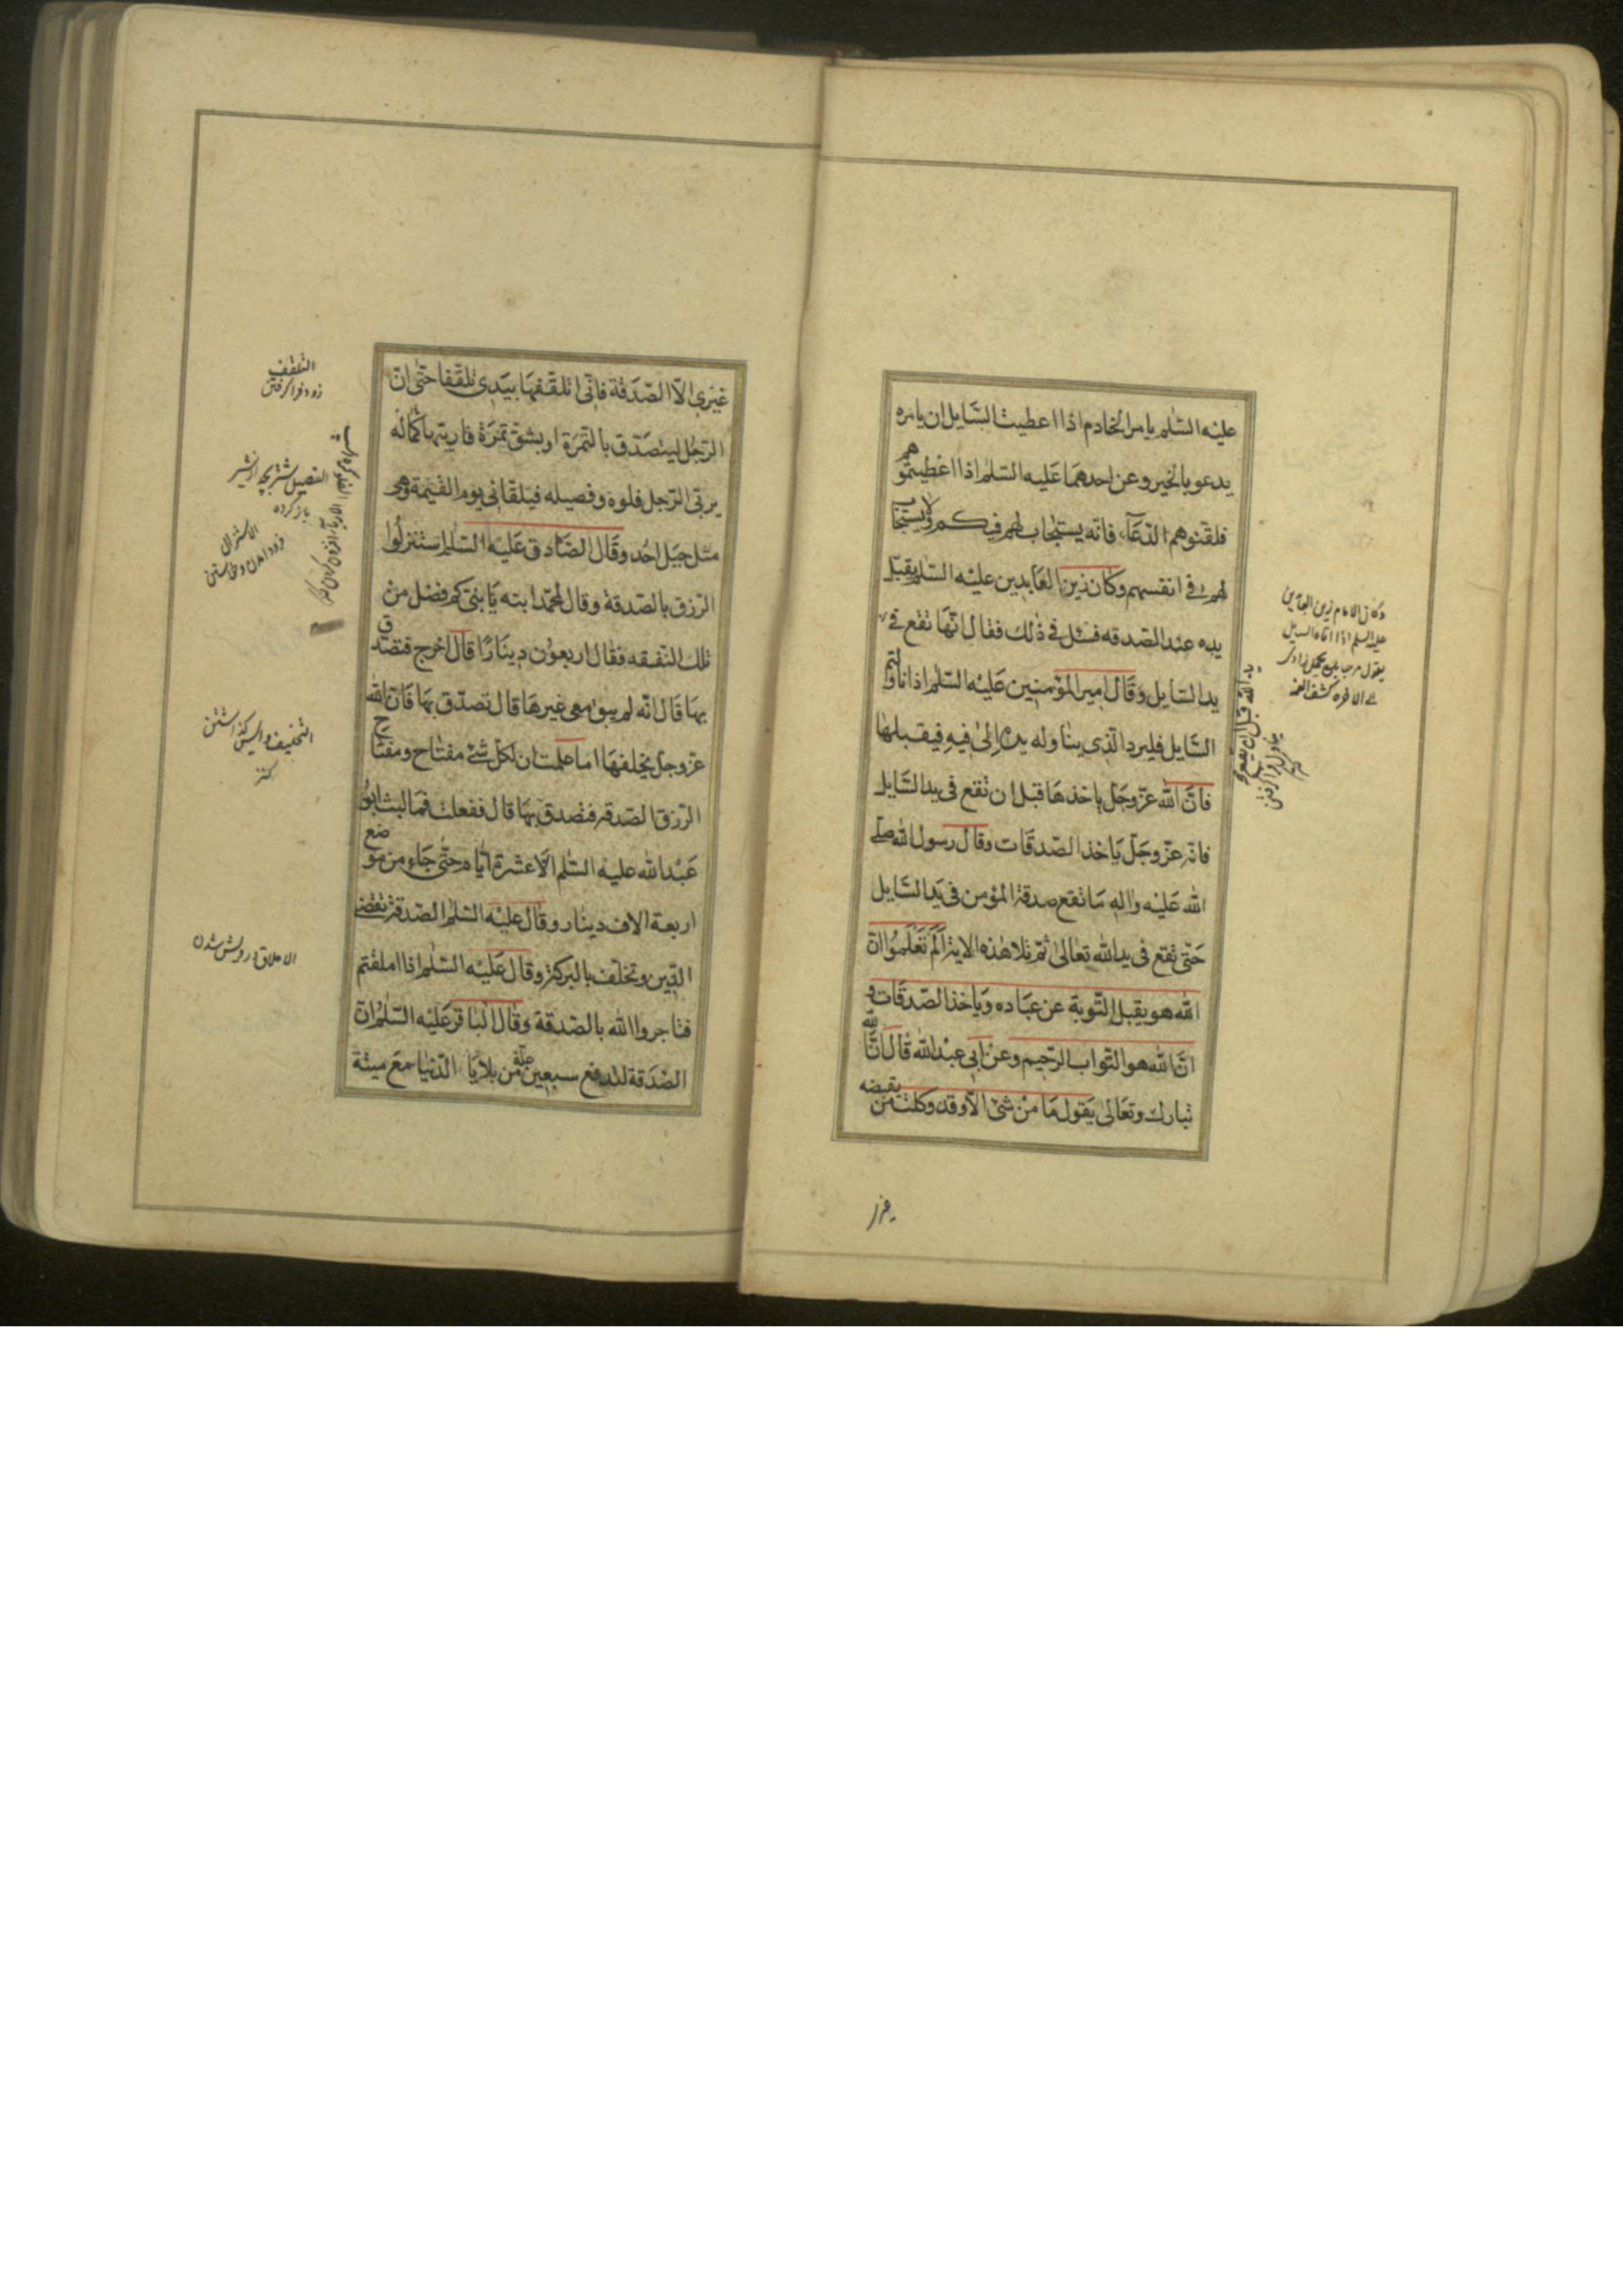 عليه السّلم يامر الخادم اذا اعطيت السّايل ان يامره
يدعو بالخير وعن احدهما عليه السّلم اذا اعطيتموهم
فلقّنوهم الدّعآء فانّه يستجاب لهم فيكم ولا يستجاب
لهم في انفسهم وكان زين العابدين عليه السّلم يقبّل
يده عند الصّدقه فسئل في ذلك فقال انّها تقع في
يد السّايل وقال امير المؤمنين عليه السّلم اذا ناولتم
السّايل فليرد الّذي يناوله يده الى فيه فيقبلها
فانّ الله عزّ وجلّ ياخذها قبل ان تقع في يد السّايل
فانّه عزّ وجلّ ياخذ الصّدقات وقال رسول الله صلّى
الله عليه واله ما تقع صدقة المؤمن في يد السّايل
حتّى تقع في يد الله تعالى ثمّ تلا هذه الاية الم تعلموا انّ
الله هو يقبل التّوبة عن عباده وياخذ الصّدقات و
انّ الله هو التّواب الرّحيم وعن ابي عبد الله قال انّ الله
تبارك وتعالى يقول ما من شئ الّا وقد وكلت من يقبضه
وكان الامام زين العابدين
عليه السلم اذا اتاه السايل
يقول مرحبا بمن يحمل زادى
الى الاخرة كشف الغمه
يد الله قبل ان تقع في
غيرى
غيرى الّا الصّدقة فانّى اتلقّفها بيدى تلقّفا حتّى انّ
الرّجل ليتصدّق بالتّمرة او بشقّ تمرة فاربيها كما
يربّى الرّجل فلوه وفصيله فيلقانى يوم القيمة وهى
مثل جبل احد وقال الصّادق عليه السّلم استنزلوا
الرّزق بالصّدقة وقال لمحمّد ابنه يا بنىّ كم فضل من
تلك النّفقه فقال اربعون دينارًا قال اخرج فتصدّق
بها قال انّه لم يبق معى غيرها قال تصدّق بها فانّ الله
عزّ وجلّ يخلفها اما علمت ان لكلّ شئ مفتاح ومفتاح
الرّزق الصّدقة فتصدّق بها قال ففعلت فما لبث ابو
عبد الله عليه السّلم الّا عشرة ايّام حتّى جاءه من موضع
اربعة الاف دينار وقال عليه السّلم الصّدقة تقضى
الدّين وتخلّف بالبركة وقال عليه السّلم اذا املقتم
فتاجروا الله بالصّدقة وقال الباقر عليه السّلم انّ
الصّدقة لتدفع سبعين علّة من بلايا الدّنيا مع ميتة
التلقف
زود فرا كرفتن
الفصيل شتر بچه از شير
باز كرده
الاستنزال
فرود امدن و خواستن
الاملاق درويش شدن